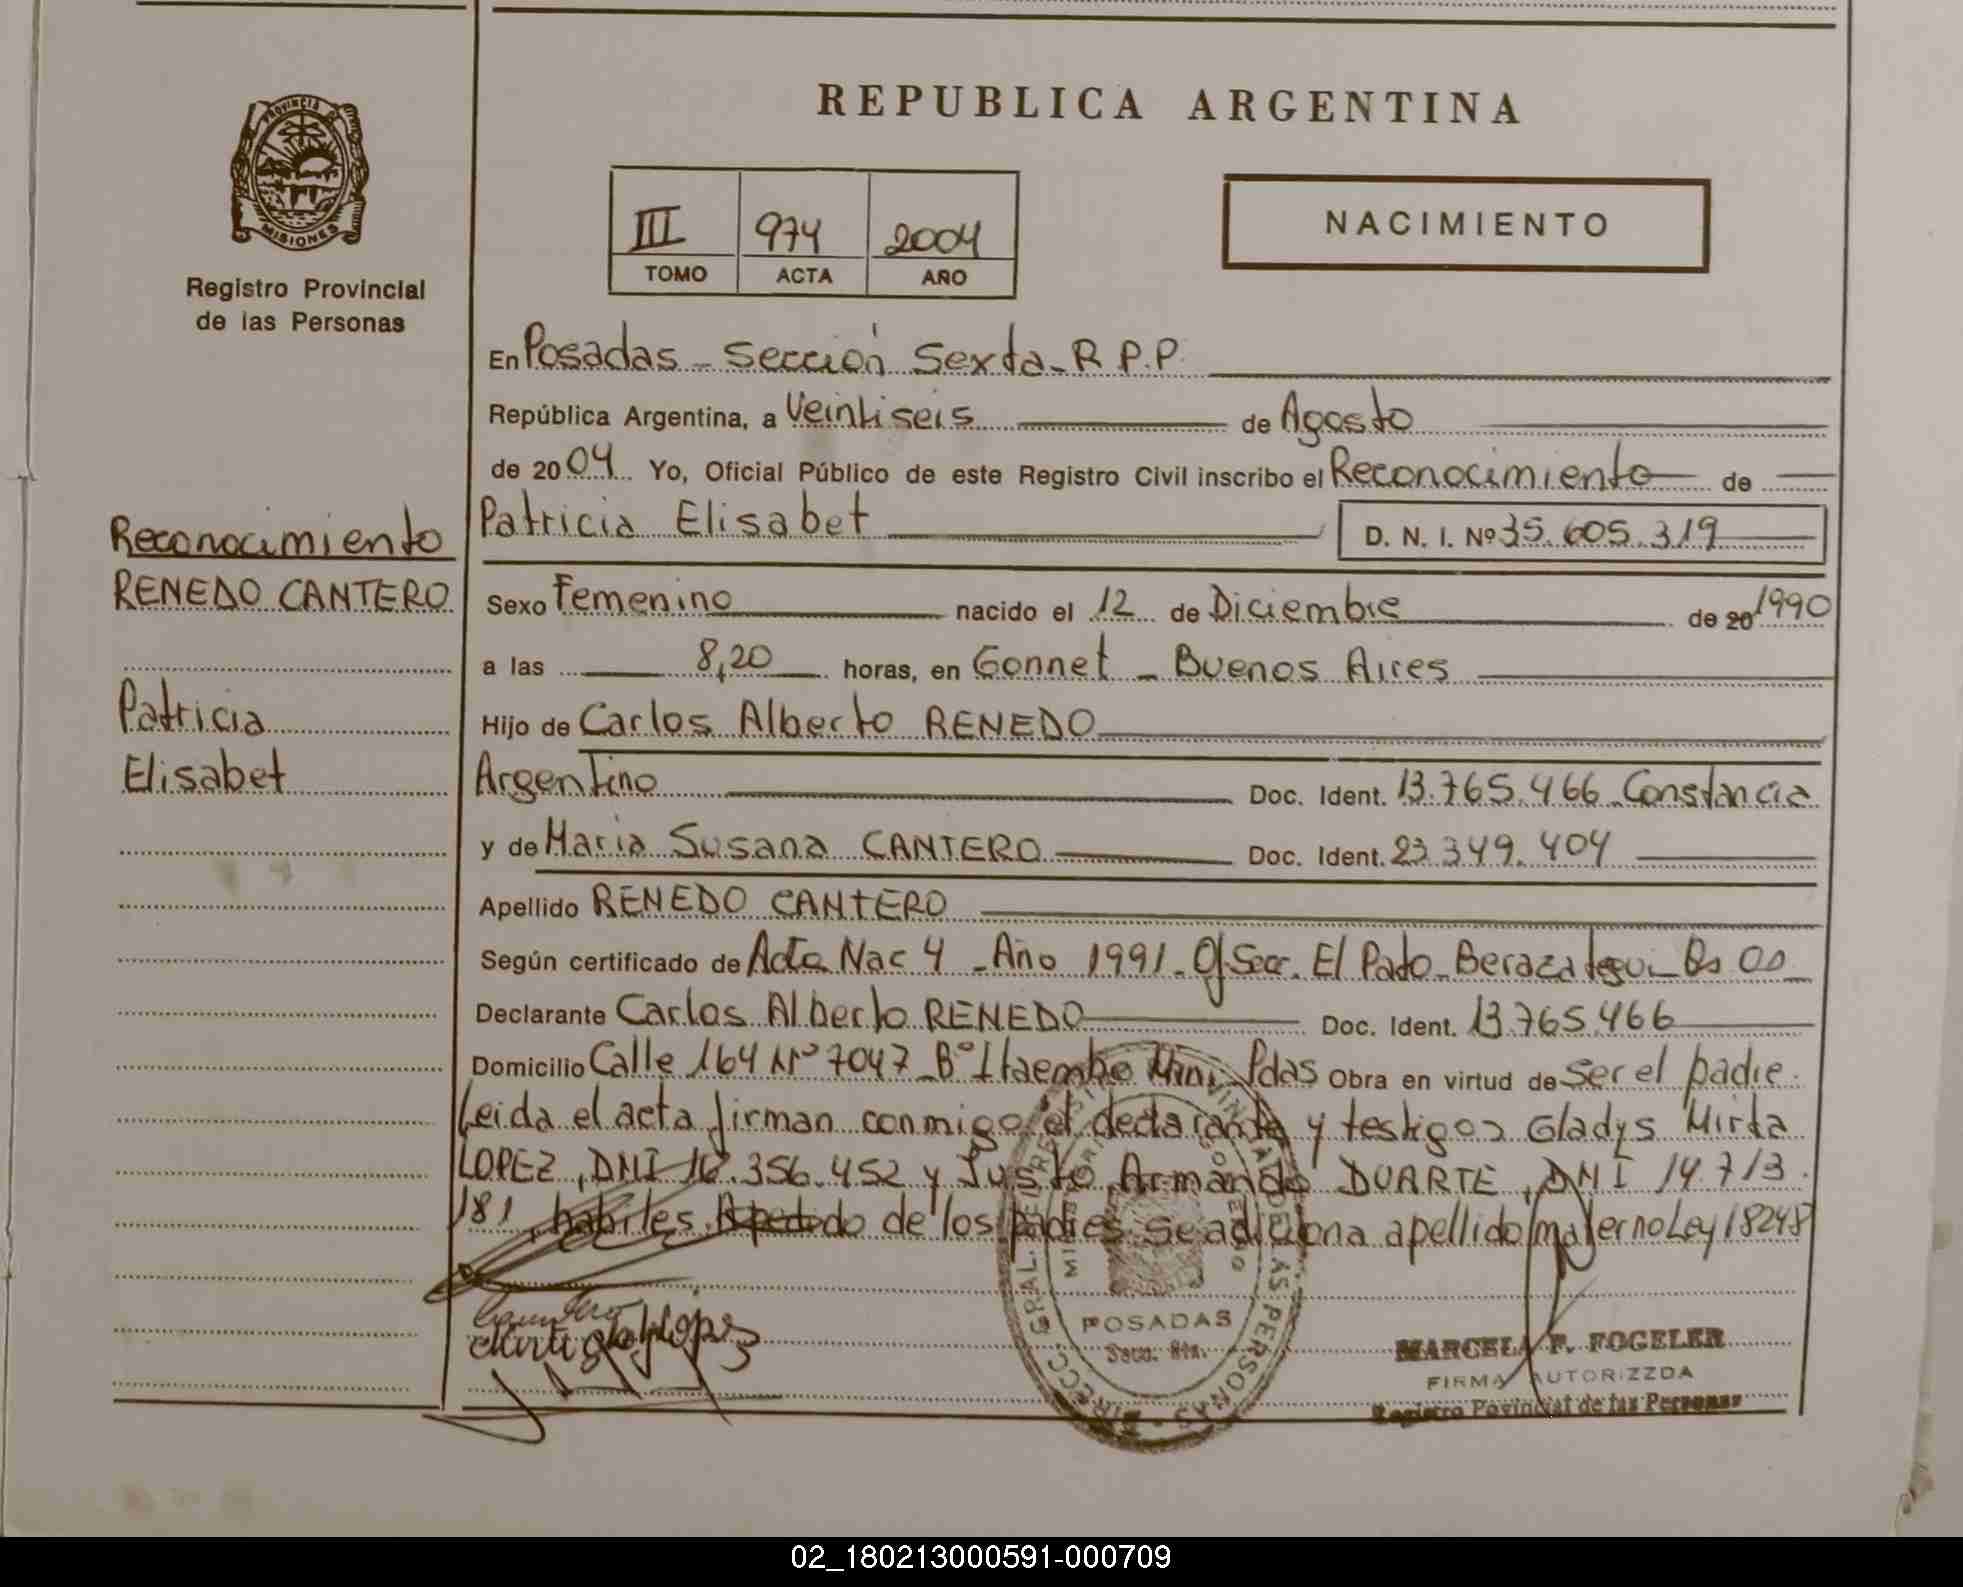 REPUBLICA ARGENTINA
PROVINCIA
MISIONES
Registro Provincial
de las Personas
III 974 2004
TOMO ACTA AÑO
NACIMIENTO
En Posadas - Sección Sexta - R.P.P.
República Argentina, a Veintiseis de Agosto
de 2004 Yo, Oficial Público de este Registro Civil inscribo el Reconocimiento de
Patricia Elisabet D. N. I. Nº 35.605.319
Reconocimiento
RENEDO CANTERO
Patricia
Elisabet
Sexo Femenino nacido el 12 de Diciembre de 20 1990
a las 8,20 horas, en Gonnet - Buenos Aires
Hijo de Carlos Alberto RENEDO
Argentino Doc. Ident. 13.765.466 Constancia
y de Maria Susana CANTERO Doc. Ident. 23.349.404
Apellido RENEDO CANTERO
Según certificado de Acta Nac 4 - Año 1991 - Of Secc. El Pato - Berazategui - Bs As
Declarante Carlos Alberto RENEDO Doc. Ident. 13.765.466
Domicilio Calle 164 Nº 7047 - Bº Itaembe Mini - Pdas Obra en virtud de ser el padre.
Leida el acta firman conmigo el declarante y testigos Gladys Mirta
LOPEZ, DNI 16.356.452 y Justo Armando DUARTE, DNI 14.713.
181, habiles. A pedido de los padres se adiciona apellido materno Ley 18248
POSADAS
Secc. 6ta.
MARCELA F. FOGELER
FIRMA AUTORIZZDA
Registro Povincial de las Personas
02_180213000591-000709